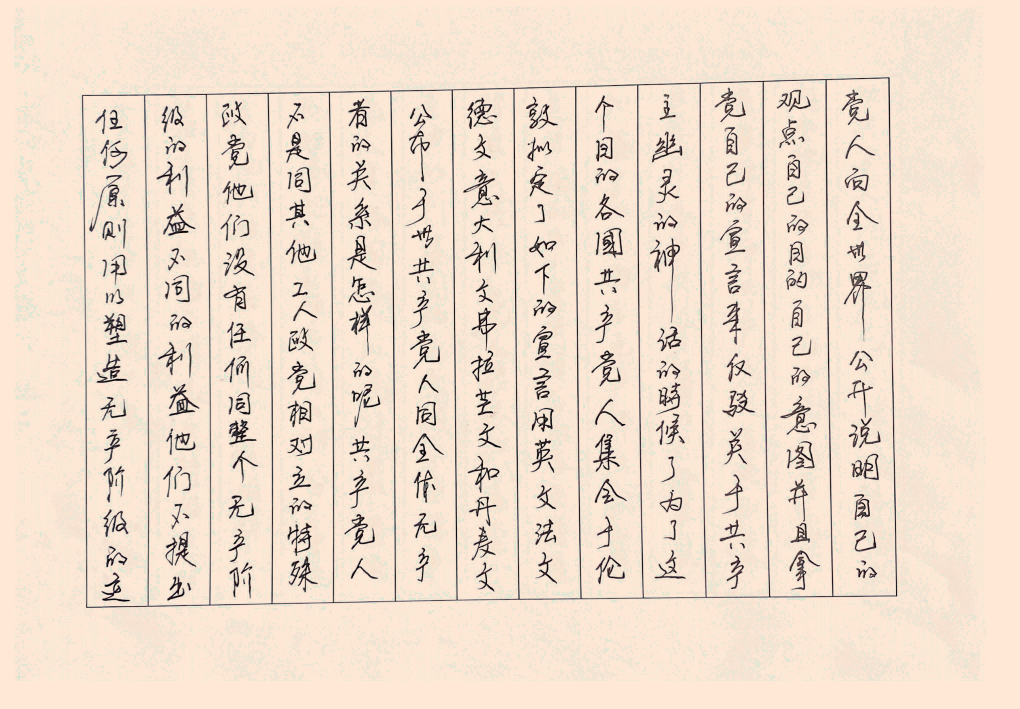 党人向全世界公开说明自己的
观点自己的目的自己的意图并且拿
党自己的宣言来反驳关于共产
主幽灵的神话的時候了为了这
个目的各國共产党人集会于伦
敦拟定了如下的宣言用英文法文
德文意大利文弗拉芒文和丹麦文
公布于世共产党人同全体无产
者的关系是怎样的呢共产党人
不是同其他工人政党相对立的特殊
政党他们没有任何同整个无产阶
级的利益不同的利益他们不提出
任何原则用以塑造无产阶级的运